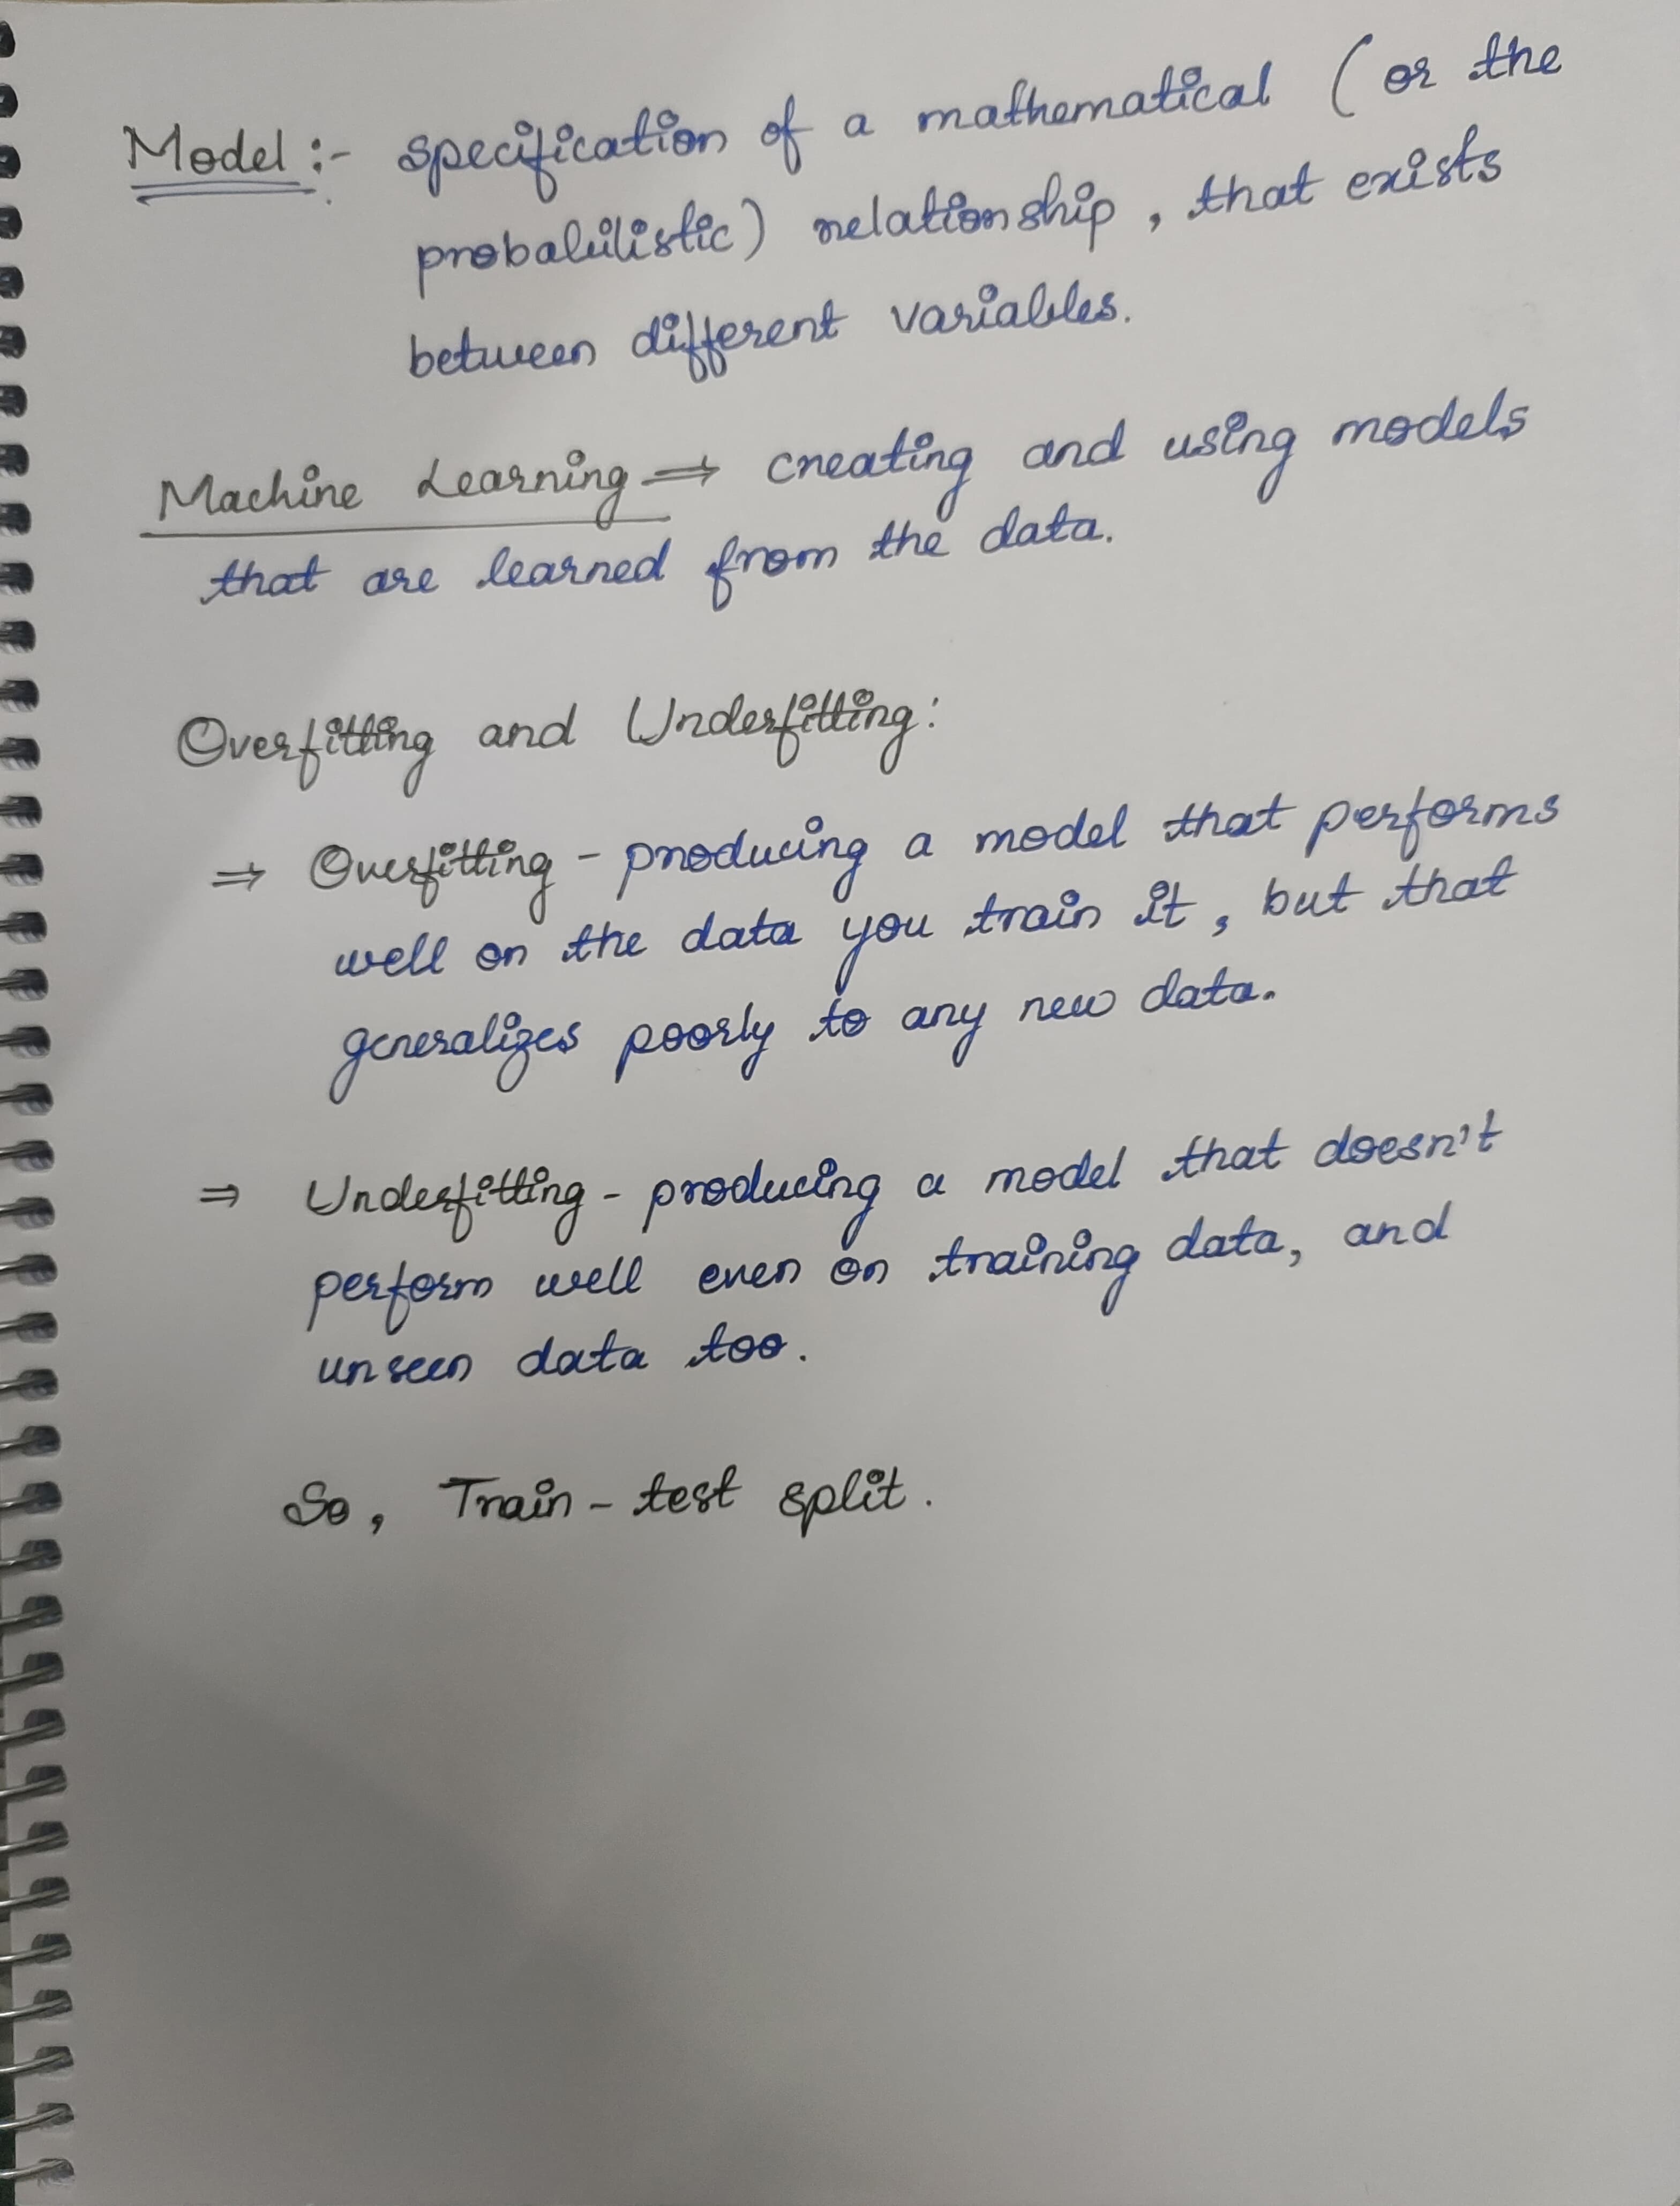 Model :- specification of a mathematical (or the
probabilistic) relationship, that exists
between different variables.
Machine Learning ⇒ creating and using models
that are learned from the data.
Overfitting and Underfitting:
⇒ Overfitting - producing a model that performs
well on the data you train it, but that
generalizes poorly to any new data.
⇒ Underfitting - producing a model that doesn't
perform well even on training data, and
unseen data too.
So, Train-test split.